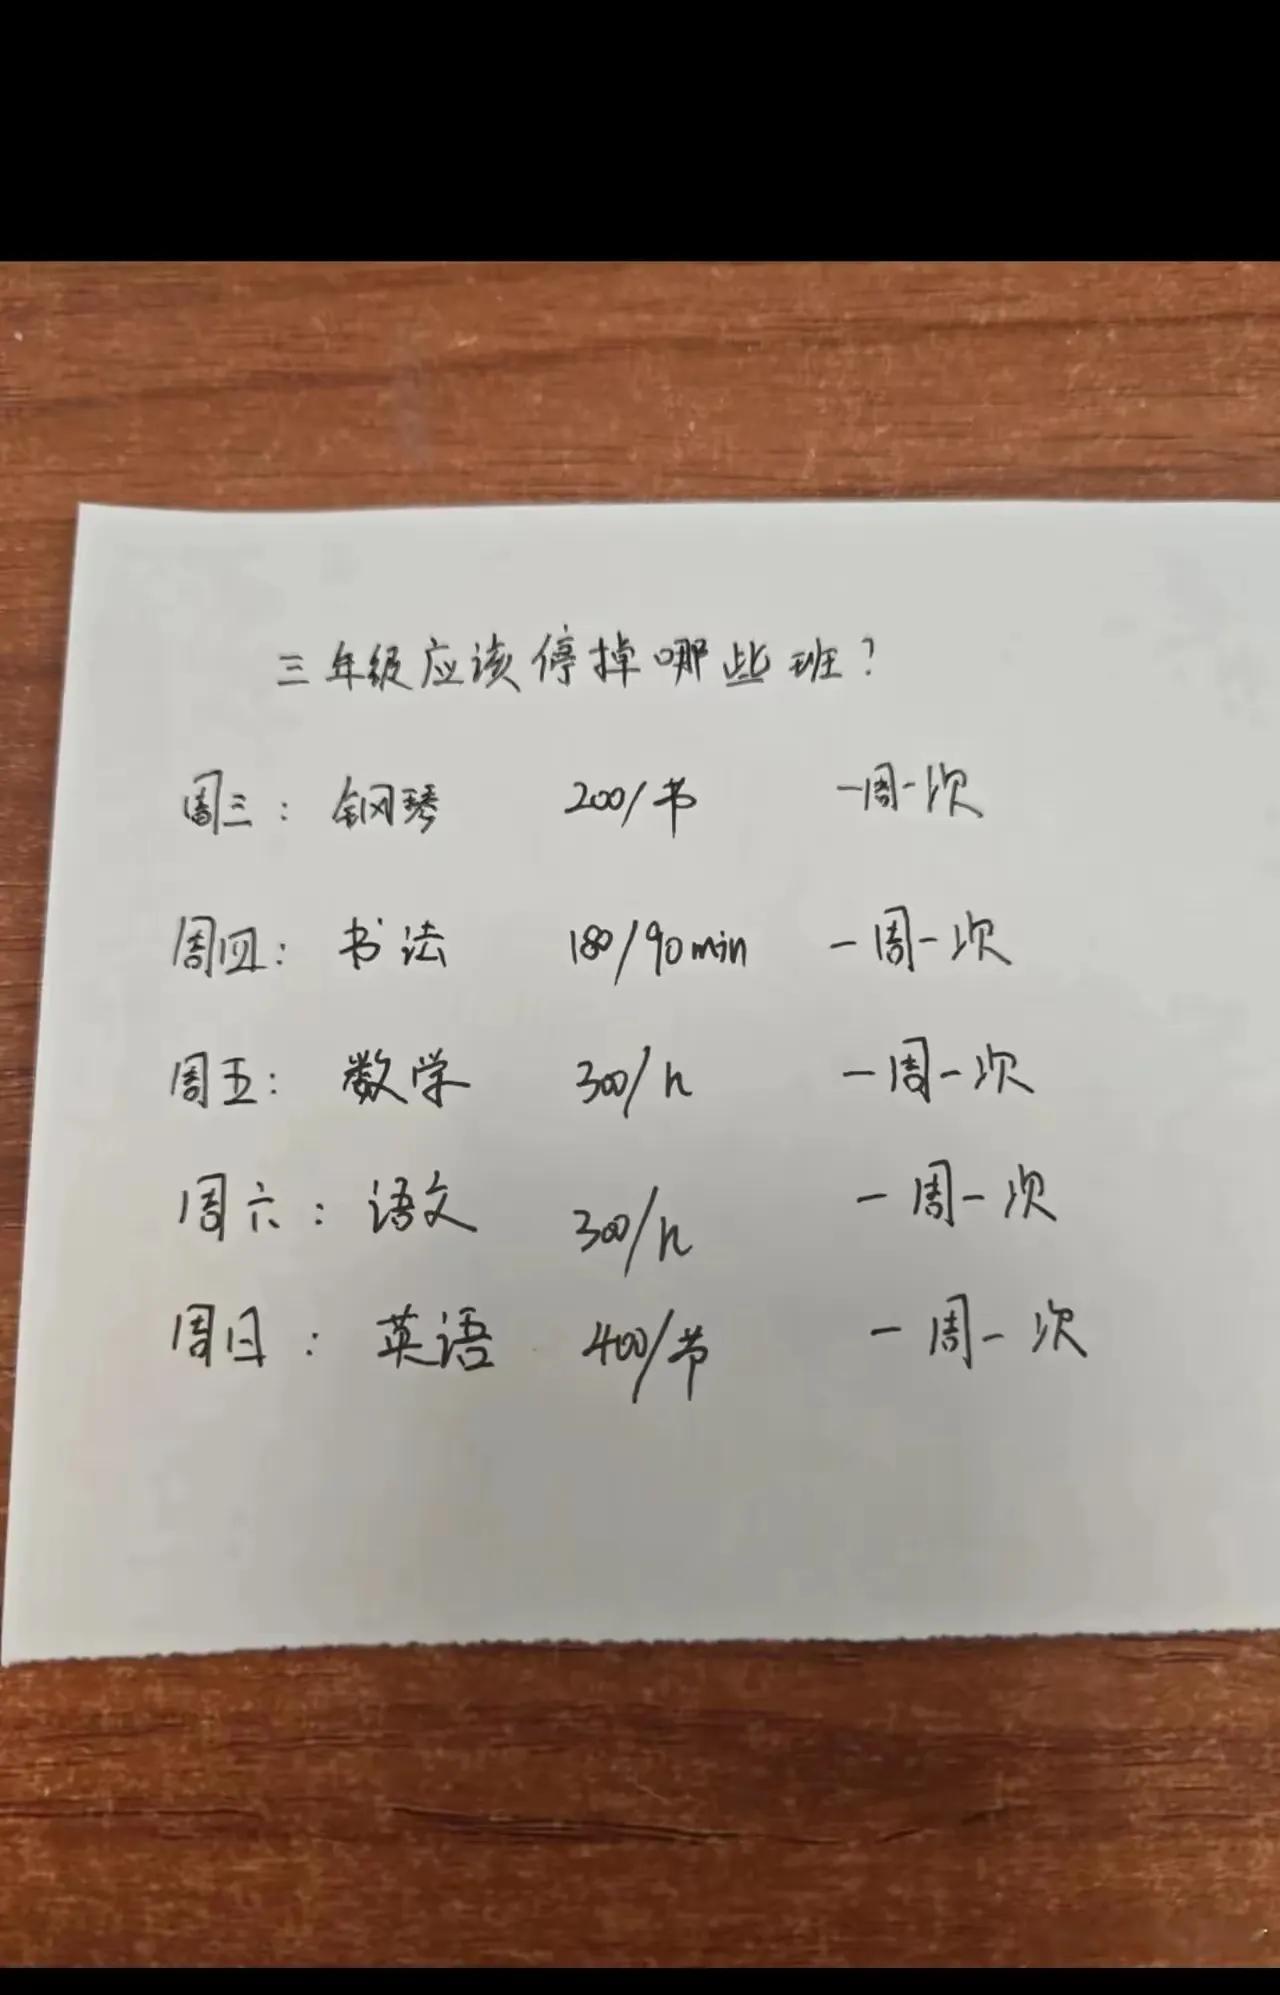 三年级应该停掉哪些班?
周三: 钢琴 200/节 一周一次
周四: 书法 180/90min 一周一次
周五: 数学 300/h 一周一次
周六: 语文 300/h 一周一次
周日: 英语 400/节 一周一次